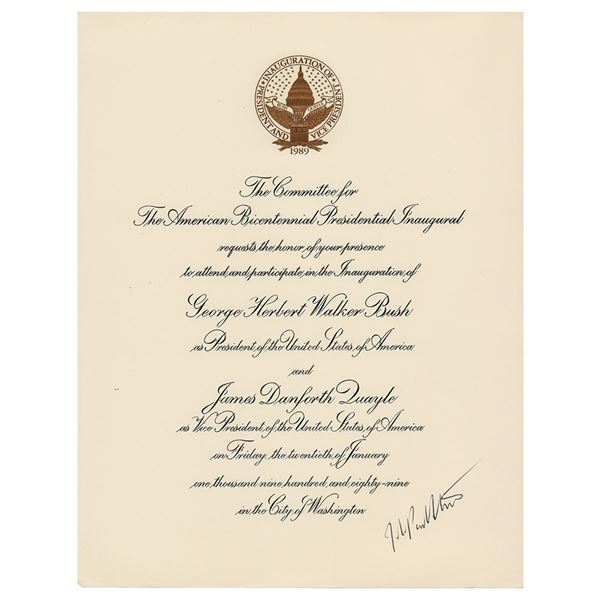 INAUGURATION OF
PRESIDENT AND VICE PRESIDENT
1989
The Committee for
The American Bicentennial Presidential Inaugural
requests the honor of your presence
to attend and participate in the Inauguration of
George Herbert Walker Bush
as President of the United States of America
and
James Danforth Quayle
as Vice President of the United States of America
on Friday, the twentieth of January
one thousand nine hundred and eighty-nine
in the City of Washington